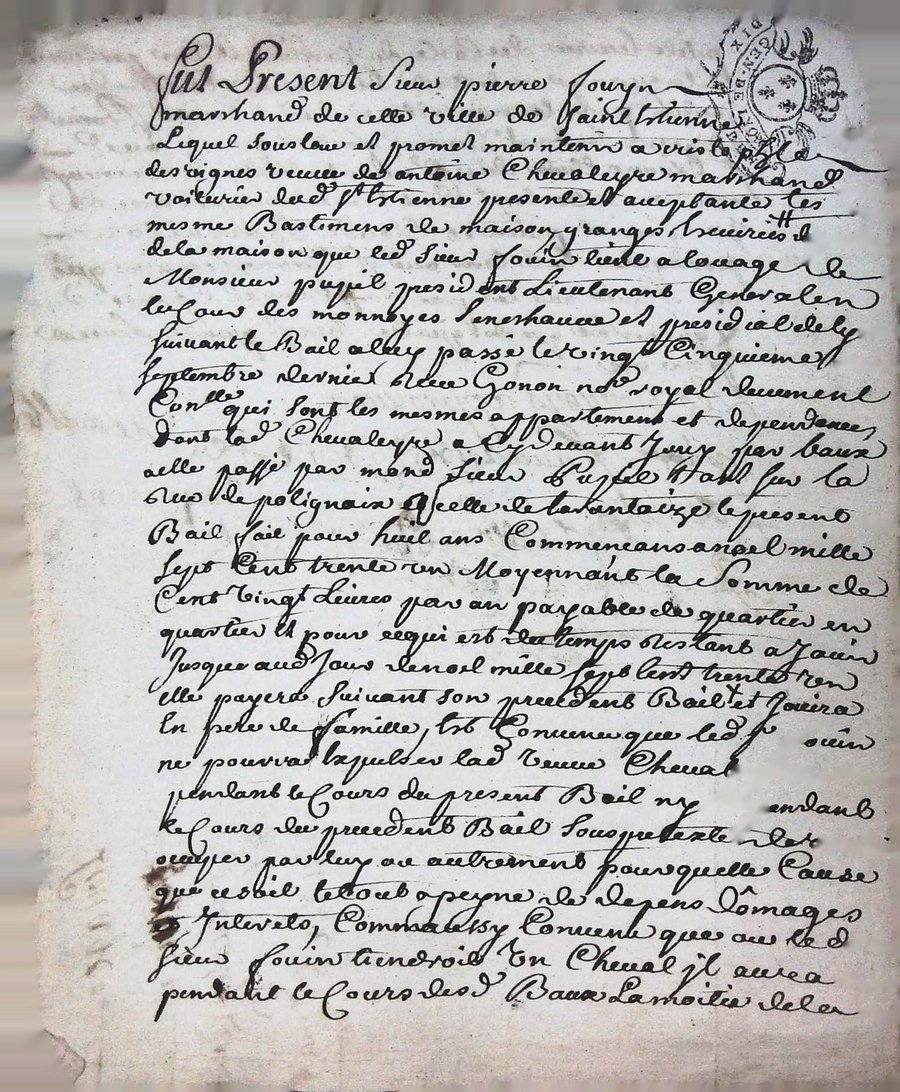 GEN. DE
DIX
Fut Present Sieur pierre Jouyn
marchand de cette ville de saint Etienne
Lequel sousloue et promet maintenir a
des vignes veuve de antoine Chevaleyre marchand
voiturier dud St Etienne presente et acceptante les
mesme Bastimens de maison, granges,
de la maison que led Sieur Jouin tient a louage de
Monsieur pupil president Lieutenant General en
la Cour des monnoyes Senechaucee et presidial de Ly
suivant le Bail a luy passé le vingt Cinquieme
septembre dernier recu Gonon nore royal deuement
Conlle qui sont les mesmes appartement et dependances
dont lad Chevaleyre a cy devant Jouy par baux
a elle passé par mond Sieur Pupil tant sur la
rue de polignaix q celle de tarantaize le present
Bail fait pour huit ans Commencans a noel mille
sept Cent trente un Moyennant la Somme de
Cent vingt Livres par an payable de quartier en
quartier Et pour ce qui est du temps restant a Jouir
Jusque aud Jour de noel mille sept Cent trente un
elle payera suivant son precedent Bail et Jouira
En pere de famille, Est Convenu que led sr ouin
ne pourra Expulser lad veuve Cheval
pendant le Cours du present Bail ny endant
le Cours du precedent Bail sous pretexte de
occuper par luy ou autrement pour quelle Cause
que ce soit le tout a peyne de depens dômages
et Interets, Comm'aussy Convenu que ou led
sieur Jouin tiendroit un Cheval jl aura
pendant le Cours desd Baux La moitié de la